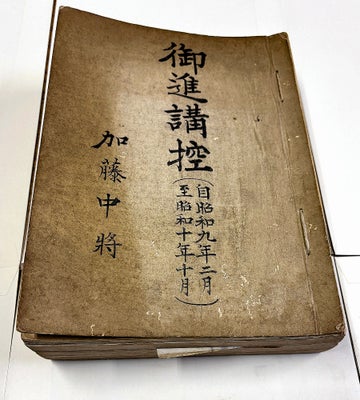 御進講控
（自昭和九年二月
至昭和十年十月）
加藤中將